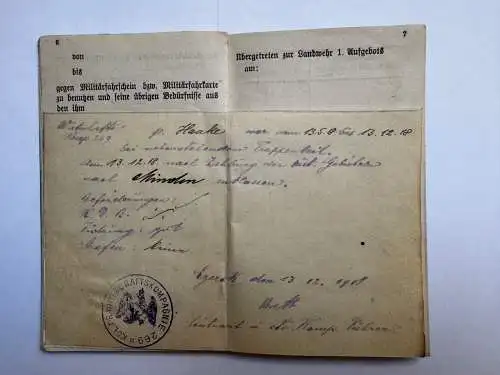 6
von
bis
gegen Militärfahrschein bzw. Militärfahrkarte
zu benutzen und seine übrigen Bedürfnisse aus
den ihm
7
Übergetreten zur Landwehr 1. Aufgebots
am:
Wirtschafts
Komp. 269
p. Haake war vom 13.5.8 bis 13.12.18
bei nebenstehendem Truppenteil.
dem 13.12.18 nach Zahlung der Gebühren
nach Minden entlassen.
Beförderungen:
K. D. B.:
Führung: gut
Strafen: keine
den 13.12.1918
Leutnant u. Komp. Führer
KGL. PR. WIRTSCHAFTSKOMPAGNIE 269